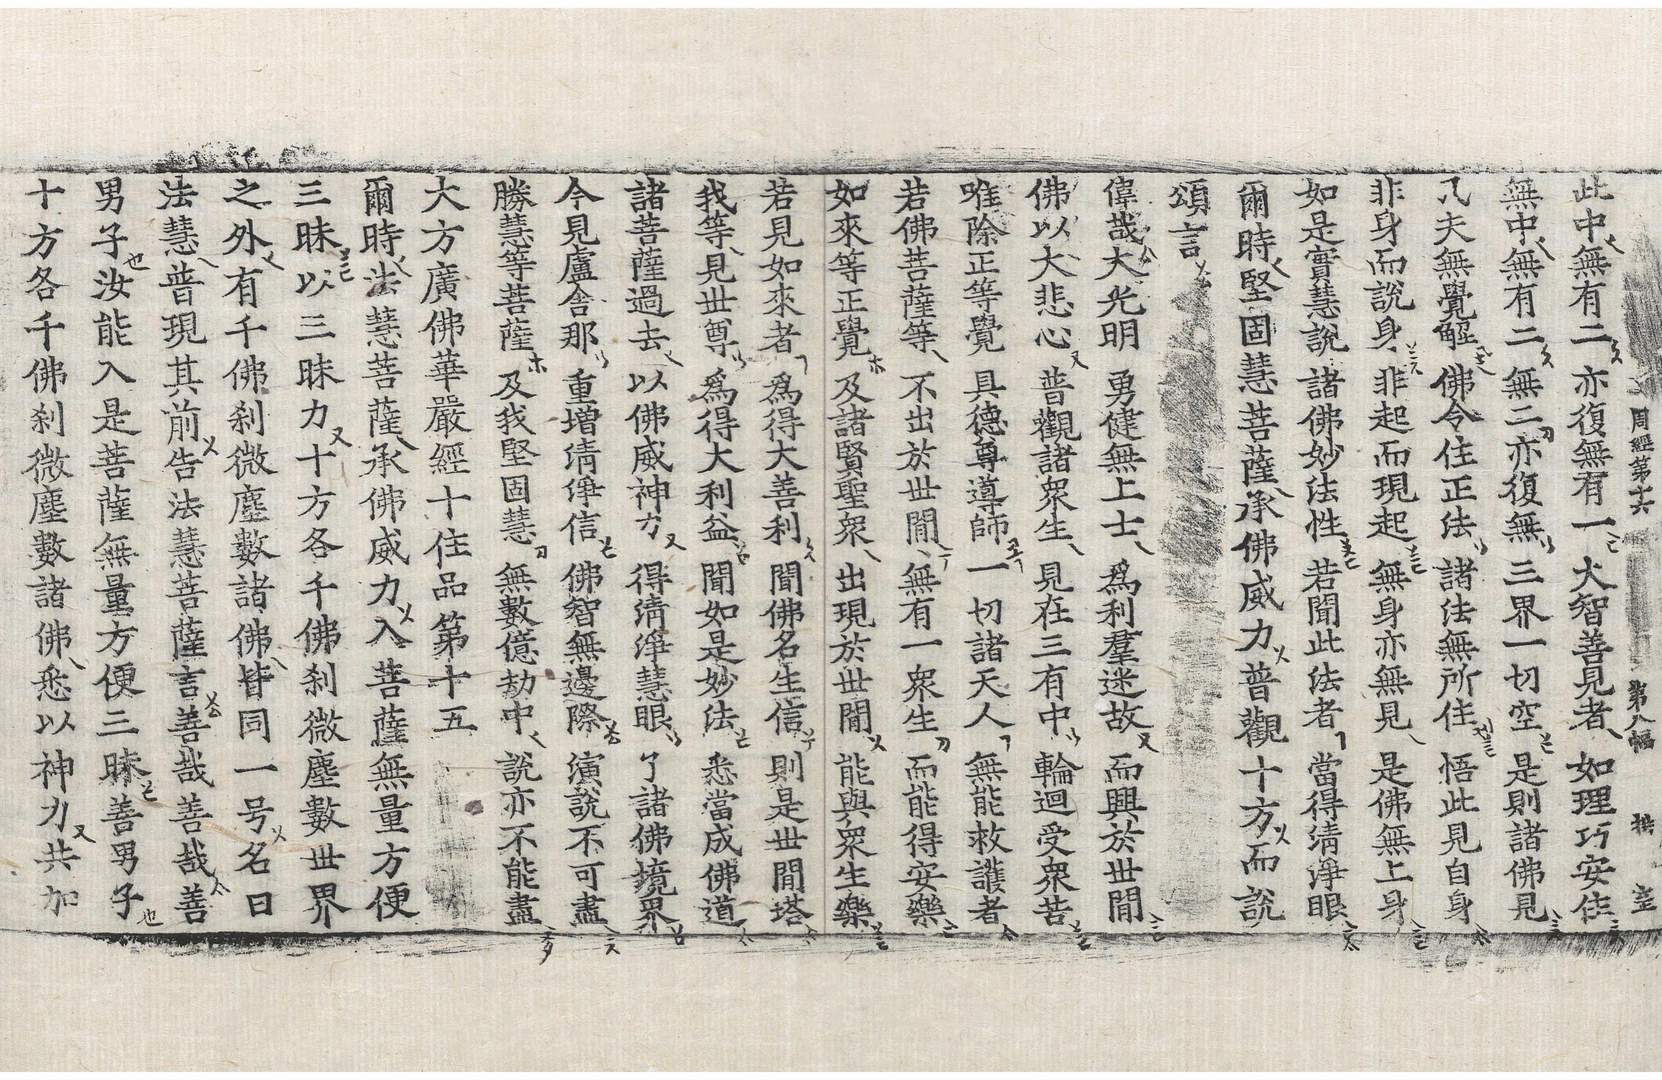 周經第十六 第八幅
此中無有二亦復無有一大智善見者如理巧安住
無中無有二無二亦復無三界一切空是則諸佛見
凡夫無覺解佛令住正法諸法無所住悟此見自身
非身而說身非起而現起無身亦無見是佛無上身
如是實慧說諸佛妙法性若聞此法者當得清淨眼
爾時堅固慧菩薩承佛威力普觀十方而說
頌言
偉哉大光明勇健無上士為利羣迷故而興於世閒
佛以大悲心普觀諸眾生見在三有中輪迴受眾苦
唯除正等覺具德尊導師一切諸天人無能救護者
若佛菩薩等不出於世閒無有一眾生而能得安樂
如來等正覺及諸賢聖眾出現於世閒能與眾生樂
若見如來者為得大善利聞佛名生信則是世閒塔
我等見世尊為得大利益聞如是妙法悉當成佛道
諸菩薩過去以佛威神力得清淨慧眼了諸佛境界
今見盧舍那重增清淨信佛智無邊際演說不可盡
勝慧等菩薩及我堅固慧無數億劫中說亦不能盡
大方廣佛華嚴經十住品第十五
爾時法慧菩薩承佛威力入菩薩無量方便
三昧以三昧力十方各千佛剎微塵數世界
之外有千佛剎微塵數諸佛皆同一号名曰
法慧普現其前告法慧菩薩言善哉善哉善
男子汝能入是菩薩無量方便三昧善男子
十方各千佛剎微塵數諸佛悉以神力共加